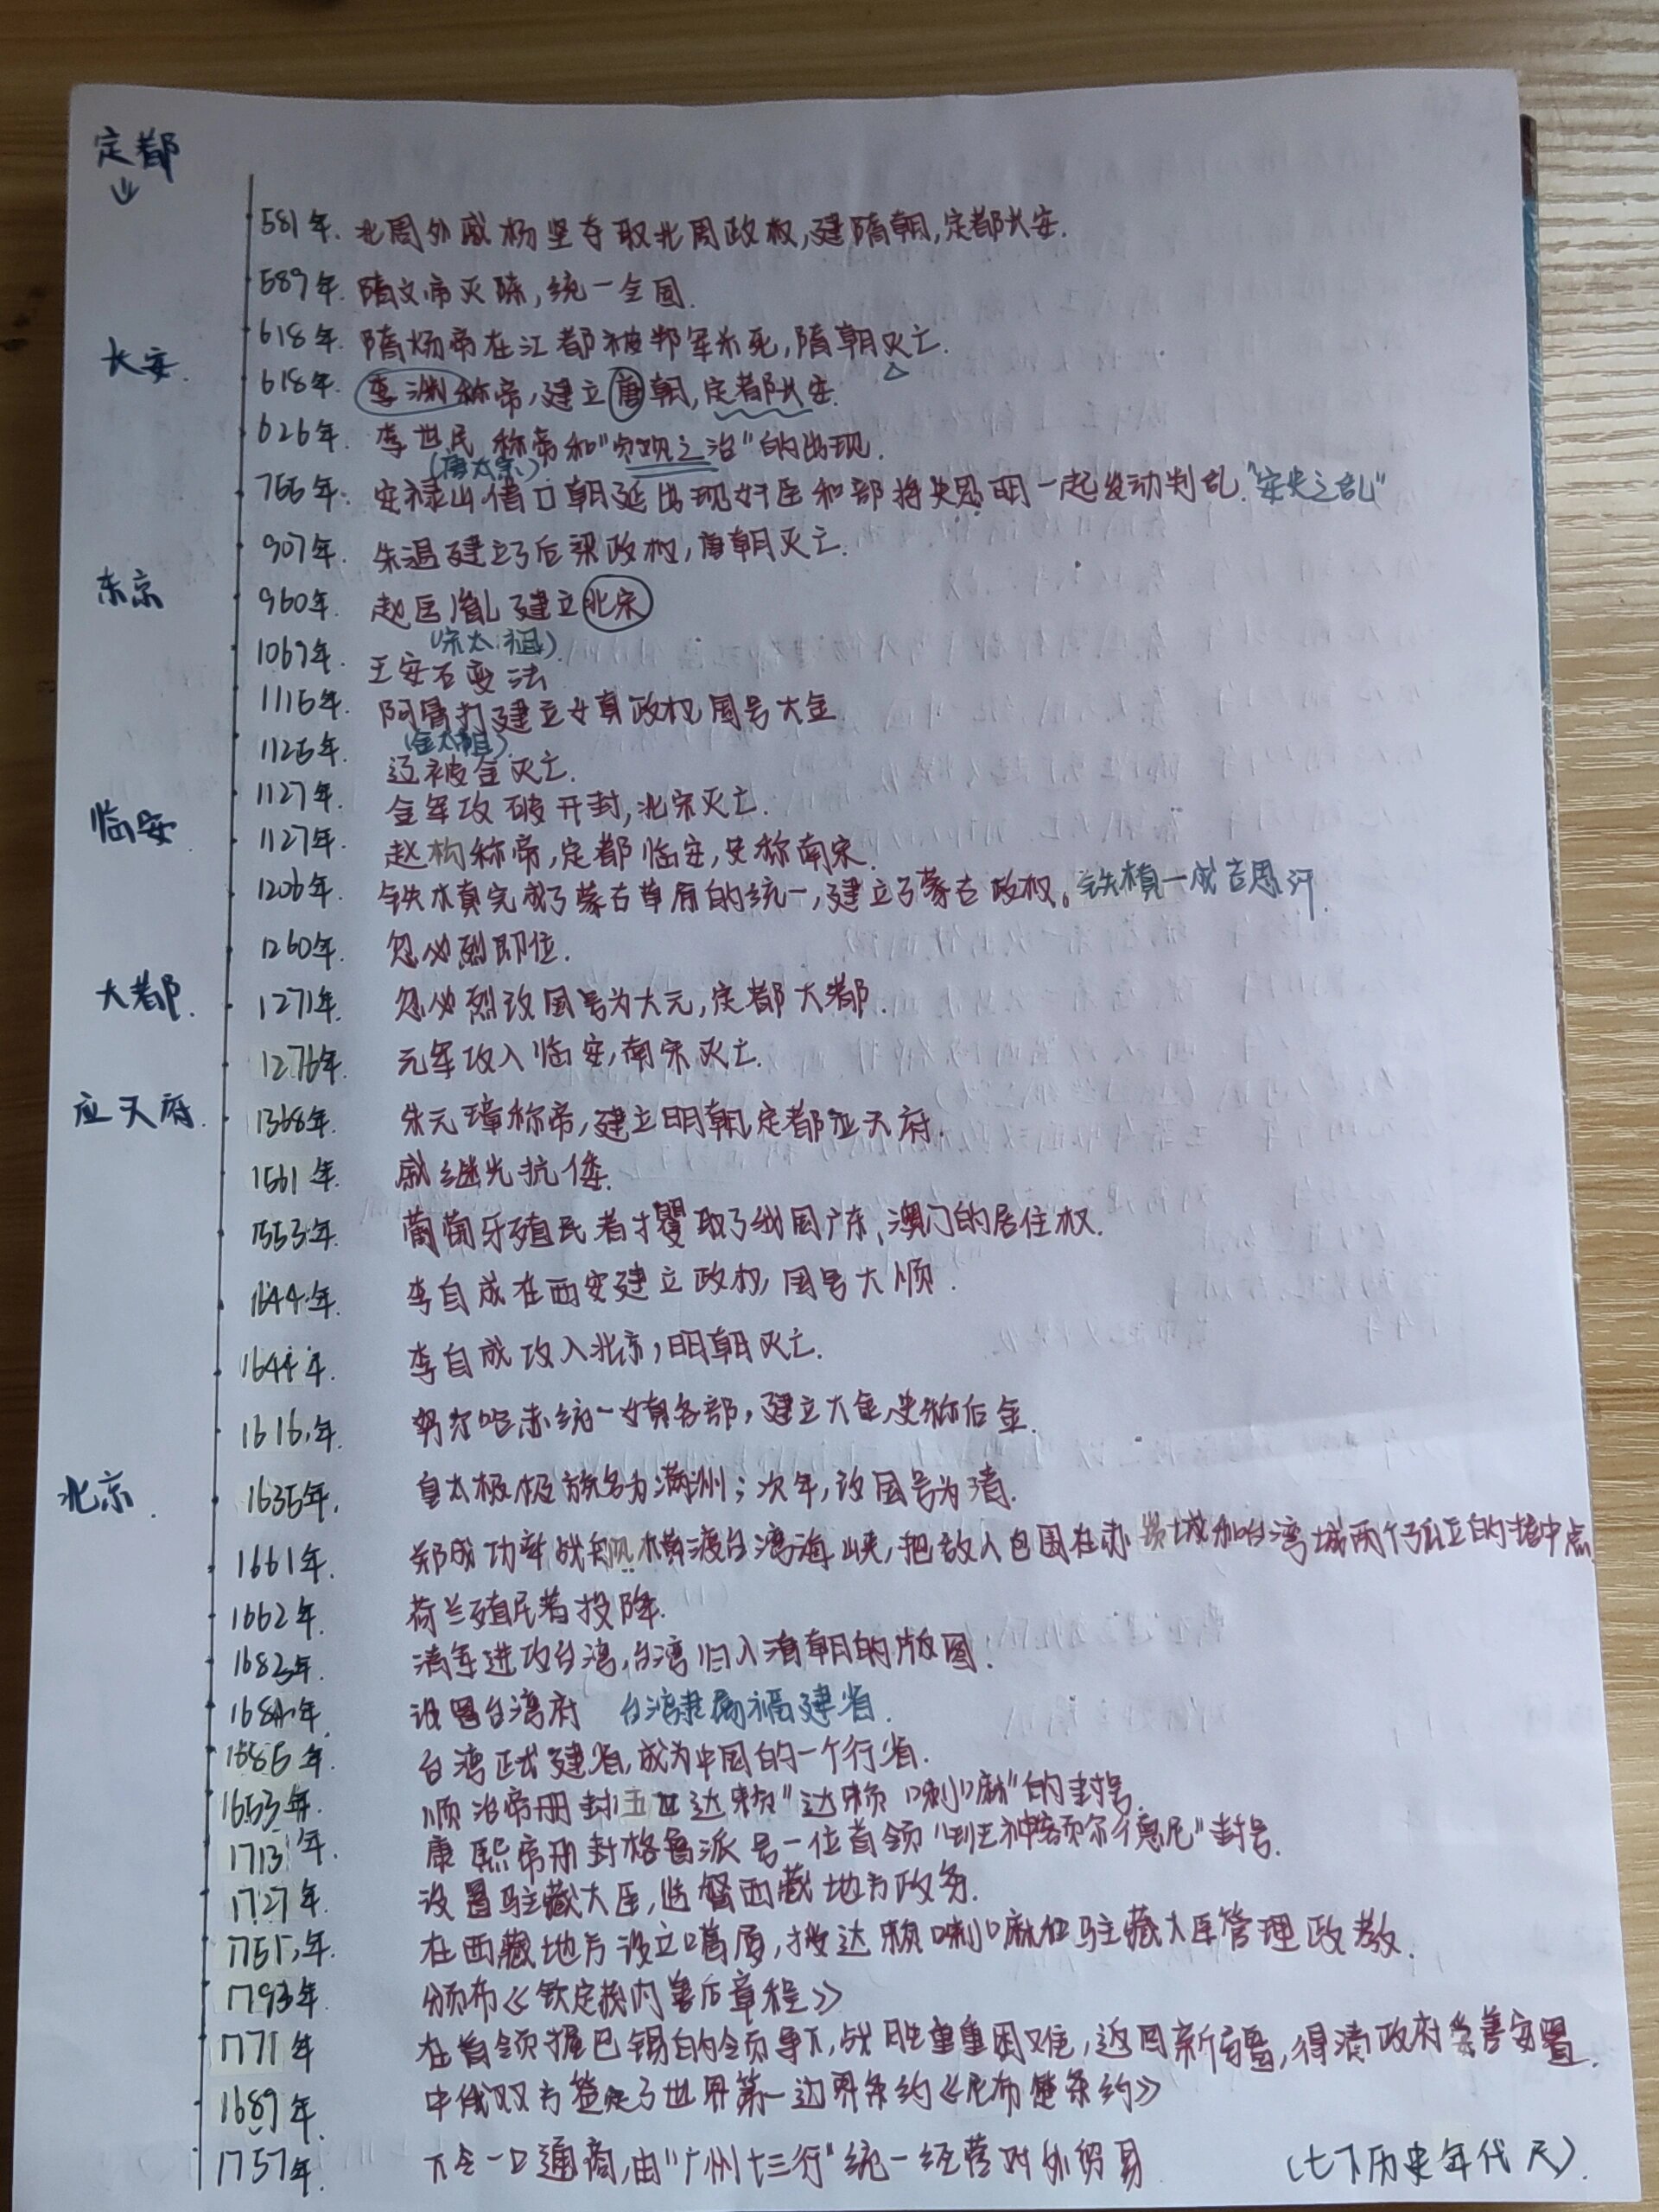 定都
↓
581年. 北周外戚杨坚夺取北周政权,建隋朝,定都长安.
589年. 隋文帝灭陈,统一全国.
618年. 隋炀帝在江都被叛军杀死,隋朝灭亡.
长安.
618年. 李渊称帝,建立唐朝,定都长安.
626年. 李世民称帝和"贞观之治"的出现.
(唐太宗)
755年. 安禄山借口朝廷出现奸臣和部将史思明一起发动判乱."安史之乱"
907年. 朱温建立了后梁政权,唐朝灭亡.
东京
960年. 赵匡胤建立北宋
(宋太祖).
1069年. 王安石变法
1115年. 阿骨打建立女真政权国号大金
(金太祖)
1125年. 辽被金灭亡.
1127年. 金军攻破开封,北宋灭亡.
临安.
1127年. 赵构称帝,定都临安,史称南宋.
1206年. 铁木真完成了蒙古草原的统一,建立了蒙古政权。铁木真—成吉思汗.
1260年. 忽必烈即位.
大都.
1271年. 忽必烈改国号为大元,定都大都.
1276年. 元军攻入临安,南宋灭亡.
应天府.
1368年. 朱元璋称帝,建立明朝,定都应天府.
1561年. 戚继光抗倭.
1553年. 葡萄牙殖民者攫取了我国广东、澳门的居住权.
1644年. 李自成在西安建立政权,国号大顺.
1644年. 李自成攻入北京,明朝灭亡.
1616年. 努尔哈赤统一女真各部,建立大金,史称后金.
北京.
1635年. 皇太极极族名为满洲;次年,改国号为清.
1661年. 郑成功率战船横渡台湾海峡,把敌人包围在赤城和台湾城两个孤立的据中点
1662年. 荷兰殖民者投降.
1683年. 清军进攻台湾,台湾归入清朝的版图.
1684年. 设置台湾府 台湾隶属福建省.
1885年. 台湾正式建省,成为中国的一个行省.
1653年. 顺治帝册封五世达赖"达赖喇嘛"的封号.
1713年. 康熙帝册封格鲁派号一位首领"班禅额尔德尼"封号.
1727年 设置驻藏大臣,监督西藏地方政务.
1751年. 在西藏地方设立噶厦,授达赖喇嘛和驻藏大臣管理政教.
1793年 颁布《钦定藏内善后章程》
1771年 在首领握巴锡的领导下,战胜重重困难,返回新疆,得清政府妥善安置.
1689年. 中俄双方签定了世界第一边界条约《尼布楚条约》
1757年. 下令一口通商,由"广州十三行"统一经营对外贸易
(七下历史年代尺).